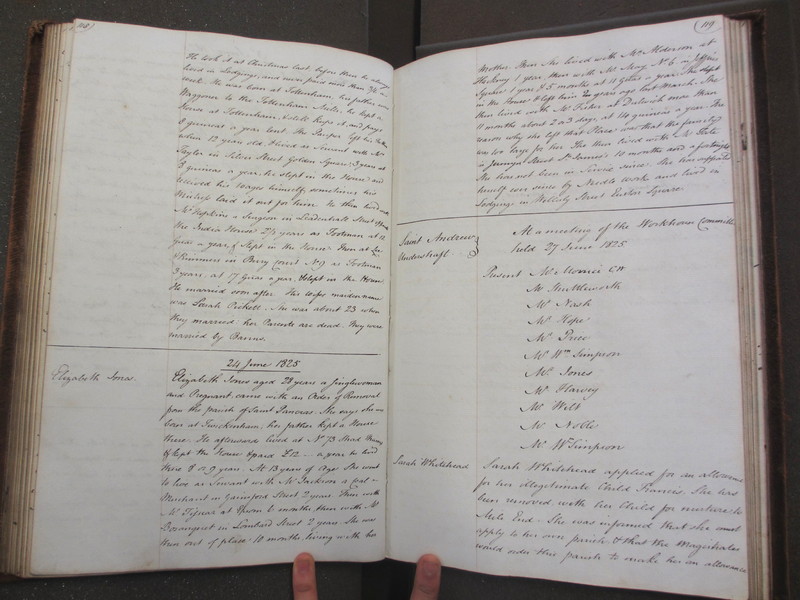 118
He took it at Christmas last, before then he always
lived in Lodgings, and never paid more than 3/6 a
week. He was born at Tottenham, his father was
Waggoner to the Tottenham Mills, he kept a
House at Tottenham, & still keeps it, and pays
8 guineas a year rent. The Pauper left his Father
when 12 years old, & lived as Servant with Mr
Taylor in Silver Street Golden Square 3 years at
3 guineas a year, he slept in the House and
received his Wages himself, sometimes his
Mistress laid it out for him. He then lived with
Mr Hopkins a Surgeon in Leadenhall Street opposite
the India House 2½ years as Footman at 12
guas a year, & Slept in the House. Then at
& Rimmers in Bury Court No 9 as Footman
3 years, at 17 Guas a year, & slept in the House
He married soon after. His wifes maiden name
was Sarah Pickett. She was about 23 when
they married, her Parents are dead. They were
married by Banns.
24 June 1825
Elizabeth Jones
Elizabeth Jones aged 28 years a Singlewoman
and Pregnant, came with an Order of Removal
from the parish of Saint Pancras. She says she was
born at Twickenham, her father kept a House
there. He afterwards lived at No 73 Shad
& kept the House & paid £12 – a year he lived
there 8 or 9 years. At 13 years of Age She went
to live as Servant with Mr Jackson a Coal
Merchant in Gainsford Street 2 years. Then with
Mr at Epsom 6 months then with Mr
Bosanquet in Lombard Street 2 years. She was
then out of place 10 months living with her
119
Mother. Then She lived with Mr Alderson at
Hackney 1 year, then with Mr King No 6 in
Square 1 year & 5 months at 11 Guas a year. She slept
in the House & left him 2 years ago last March. She
then lived with Mr Fisher at Dulwich more than
11 months about 2 or 3 days, at 14 guineas a year. The
reason why she left that Place was that the family
was too large for her. She then lived with Mr Tate
in Jermyn Street St James's 10 months and a fortnight
She has not been in Service since. She has supported
herself ever since by Needle work and lived in
Lodgings in Street Euston Square.
Saint Andrew
Undershaft
At a meeting of the Workhouse Committee
held 27 June 1825
Present Mr Morris CW
Mr Shuttleworth
Mr Nash
Mr Hope
Mr Price
Mr Wm Simpson
Mr Jones
Mr Harvey
Mr Wilt
Mr Noble
Mr W Simpson
Sarah Whitehead
Sarah Whitehead applied for an allowance
for her illegitimate Child Francis. She has
been removed with her Child for nurture to
Mile End – She was informed that she must
apply to her own parish & that the Magistrates
would order this parish to make her an allowance